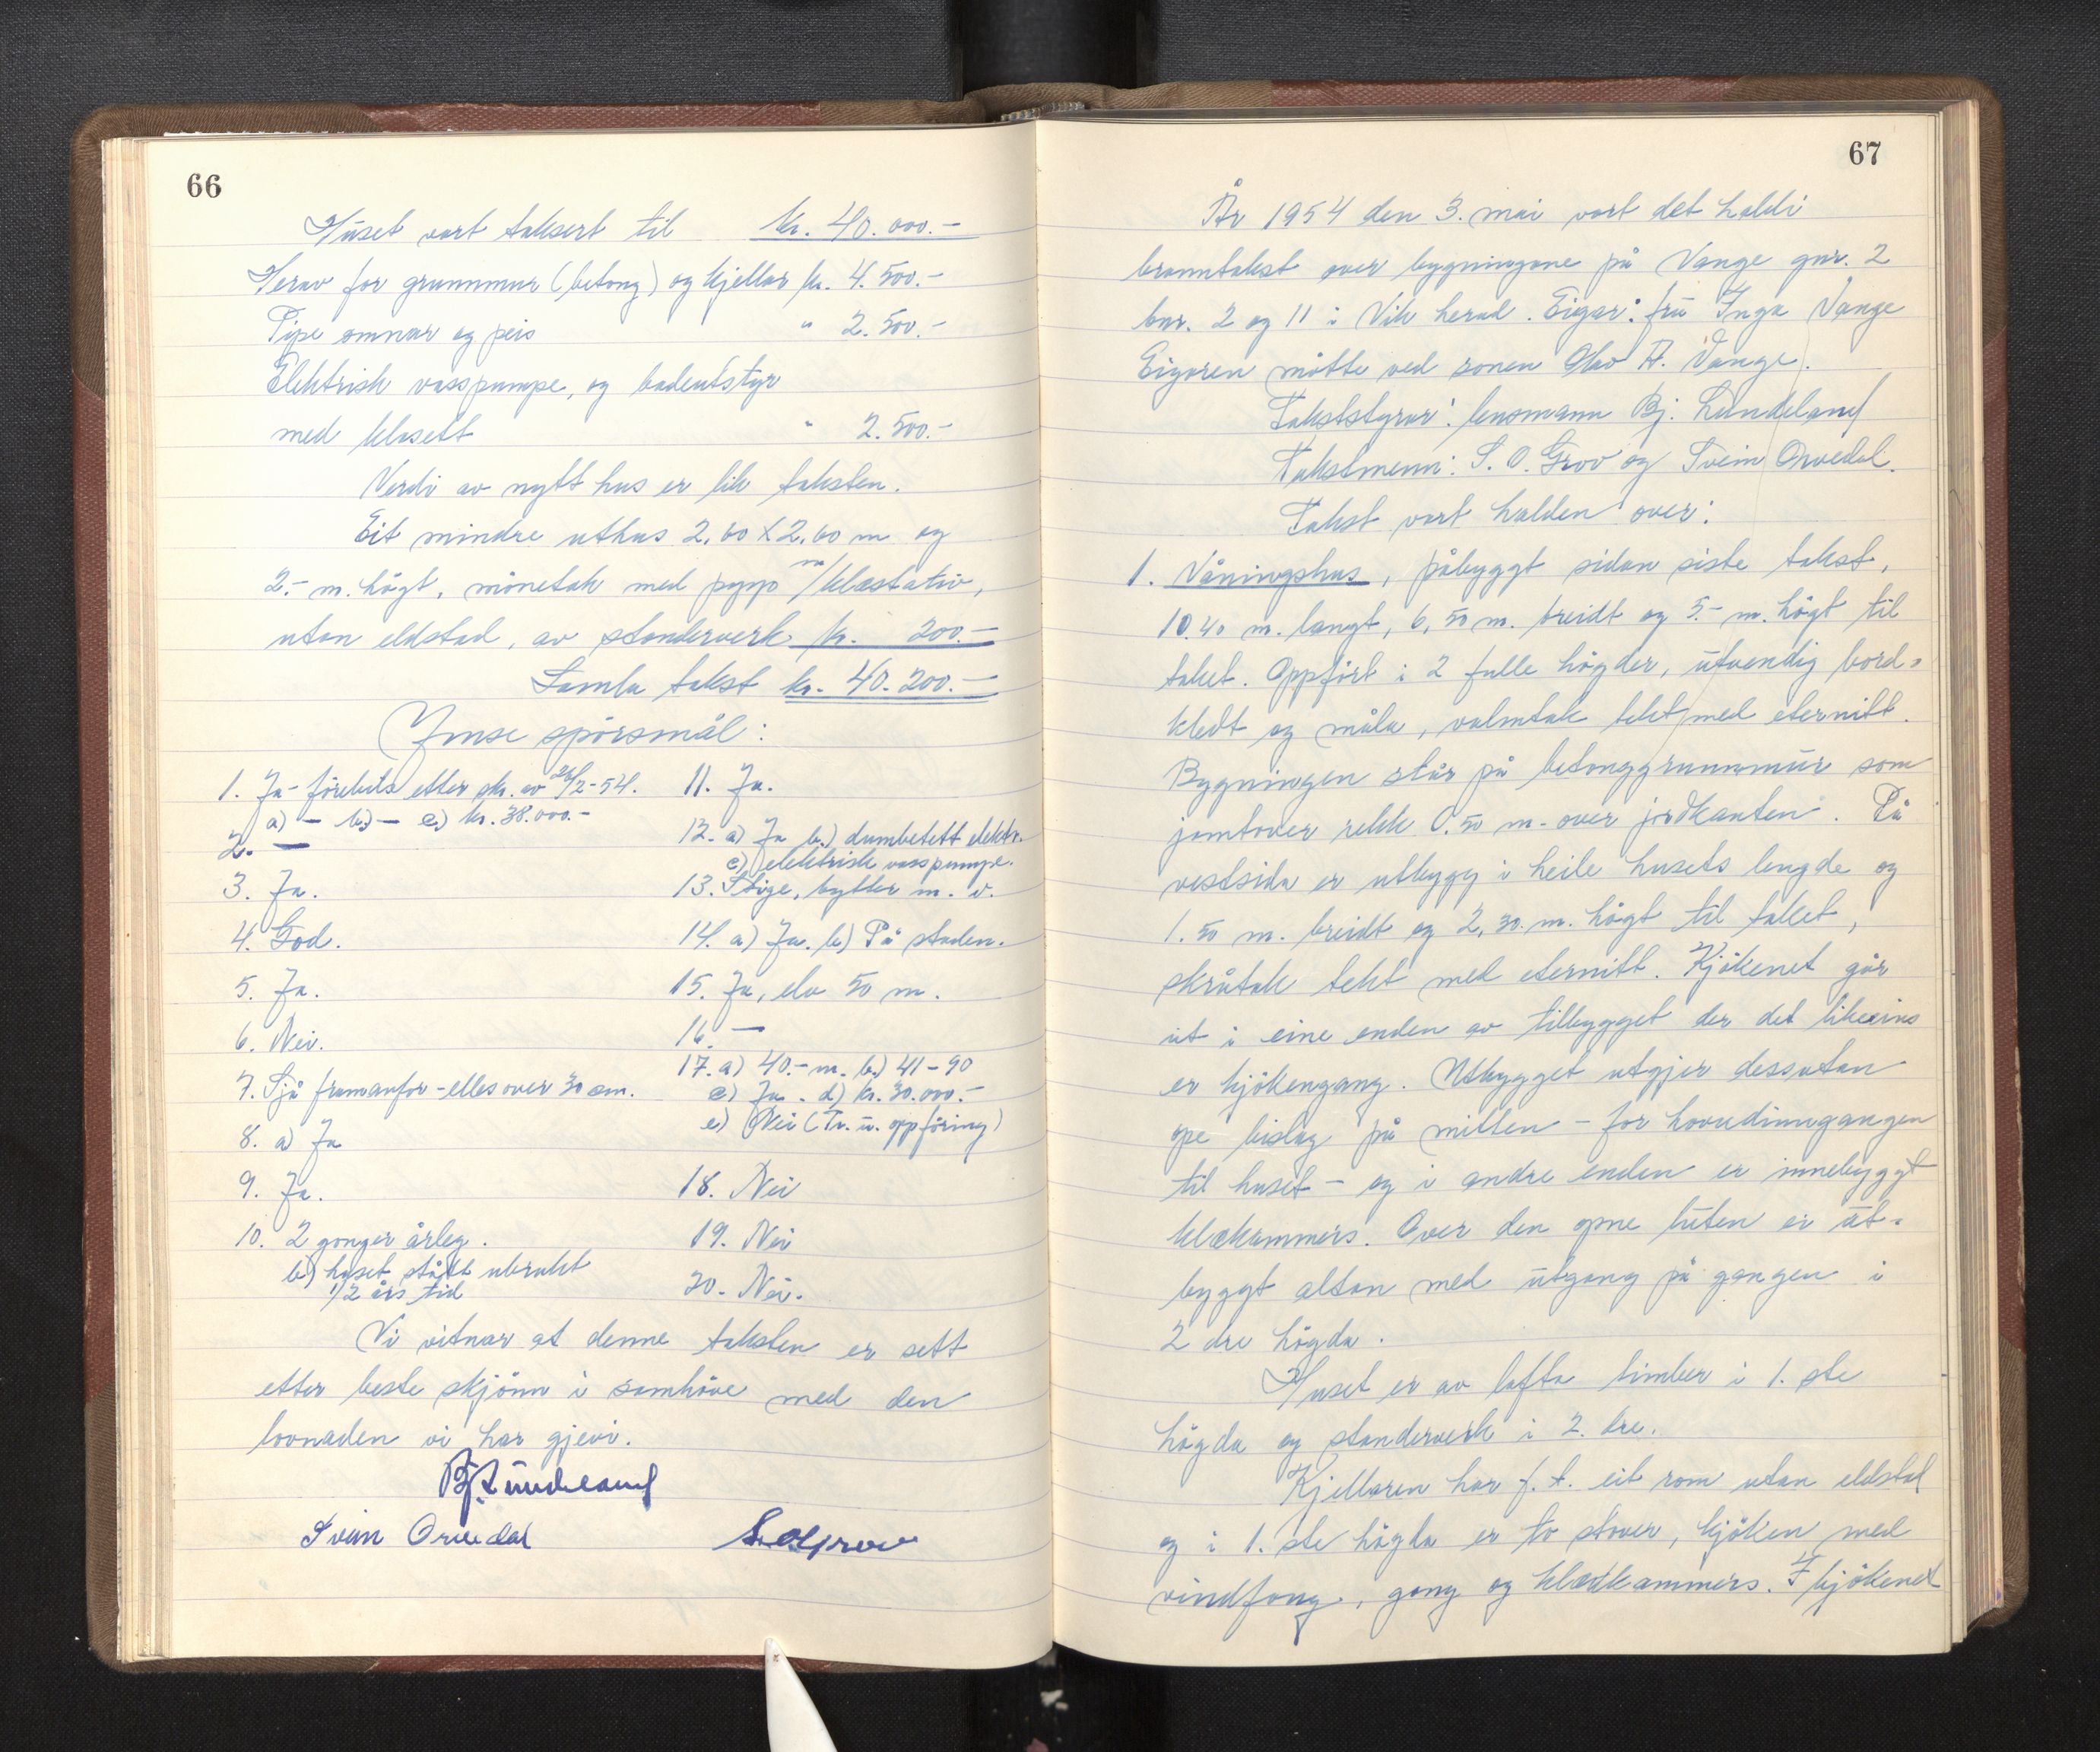 66
Huset vart taksert til kr. 40.000.-
Herav for grunnmur (betong) og kjellar kr. 4.500.-
Pipe omnar og peis " 2.500.-
Elektrisk vasspumpe, og badeutstyr
med klosett " 2.500.-
Verdi av nytt hus er lik taksten.
Eit mindre uthus 2,60 x 2,60 m og
2.- m. högt, mönetak med papp m/klosstativ,
utan eldstad, av standerverk kr. 200.-
Samla takst kr. 40.200.-
Ymse spörsmål:
1. Ja - förebels etter skr. av 26/2-54.
a) - b) - c) kr. 38.000.-
2. -
3. Ja.
4. God.
5. Ja.
6. Nei.
7. Sjå framanfor - elles over 30 cm.
8. a) Ja
9. Ja.
10. 2 gonger årleg.
b) huset stått ubrukt
1/2 års tid
11. Ja.
12. a) Ja b.) dumbetett elektr.
c) elektrisk vasspumpe.
13. Stige, bytter m. v.
14. a) Ja. b) På staden.
15. Ja, elv 50 m.
16. -
17. a) 40.- m. b.) 41-90
c) Ja. d) kr. 30.000.-
e) Nei (Tr. u. oppföring)
18. Nei
19. Nei
20. Nei.
Vi vitnar at denne taksten er sett
etter beste skjönn i samhöve med den
lovnaden vi har gjevi.
Bj. Lundeland
Svein Orvedal S. O. Grov
67
År 1954 den 3. mai vart det haldi
branntakst over bygningane på Vange gnr. 2
bnr. 2 og 11 i Vik herad. Eigar: fru Inga Vange
Eigaren mötte ved sonen Olav A. Vange.
Takststyrar: lensmann Bj. Lundeland
Takstmenn: S. O. Grov og Svein Orvedal.
Takst vart halden over:
1. Våningshus, påbyggt sidan siste takst,
10.40 m. langt, 6,50 m. breidt og 5.- m. högt til
taket. Oppfört i 2 fulle högder, utvendig bord-
kledt og måla, valmtak tekt med eternitt.
Bygningen står på betonggrunnmur som
jamtover rekk 0.50 m. over jordkanten. På
vestsida er utbygg i heile husets lengde og
1.50 m. breidt og 2,30 m. högt til taket,
skråtak tekt med eternitt. Kjökenet går
ut i eine enden av tilbygget der det likeeins
er kjökengang. Utbygget utgjer dessutan
ope bislag på mitten - for hovudinngangen
til huset - og i andre enden er innebyggt
klekammers. Over den opne luten er åt-
byggt altan med utgang på gangen i
2 dre högda.
Huset er av lafta timber i 1. ste
högda og standerverk i 2. dre.
Kjellaren har f. t. eit rom utan eldstad
og i 1. ste högda er to stover, kjöken med
vindfang, gang og kledkammers. I kjökenet